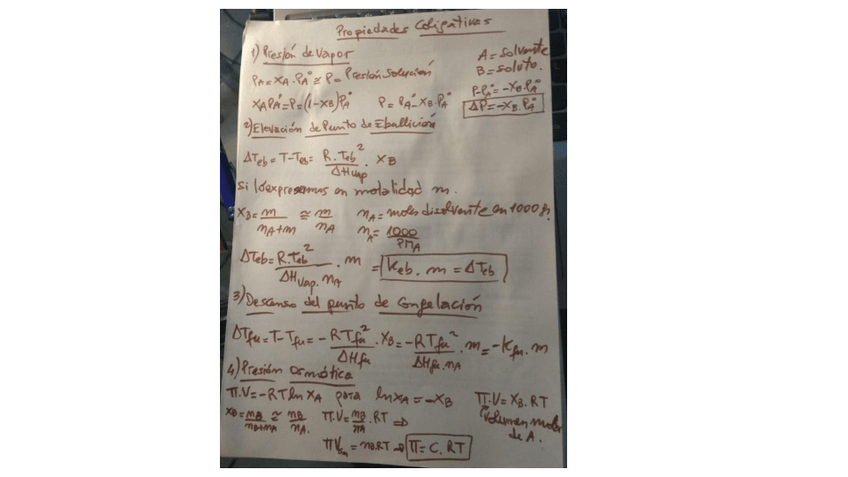 Propiedades Coligativas
1) Presión de Vapor
A = solvente
B = soluto.
PA = XA · PA° ≅ P = Presión solución
P-PA° = -XB·PA°
XA PA° = P = (1-XB)PA° P = PA° - XB·PA°
ΔP = -XB·PA°
2) Elevación de Punto de Ebullición
ΔTeb = T-Teb = R·Teb²/ΔHvap · XB
Si lo expresamos en molalidad m.
XB = m/(nA+m) ≅ m/nA nA = moles disolvente en 1000 g.
nA = 1000/PMA
ΔTeb = R·Teb²/(ΔHvap·nA) · m = Keb · m = ΔTeb
3) Descenso del punto de Congelación
ΔTfu = T-Tfu = -RTfu²/ΔHfu · XB = -RTfu²/(ΔHfu·nA) · m = -Kfu · m
4) Presión Osmótica
Π·V = -RT ln XA para ln XA = -XB Π·V = XB·RT
XB = nB/(nB+nA) ≅ nB/nA. Π·V = nB/nA · RT ⇒
Volumen molar de A.
ΠVm = nB RT ⇒ Π = C·RT